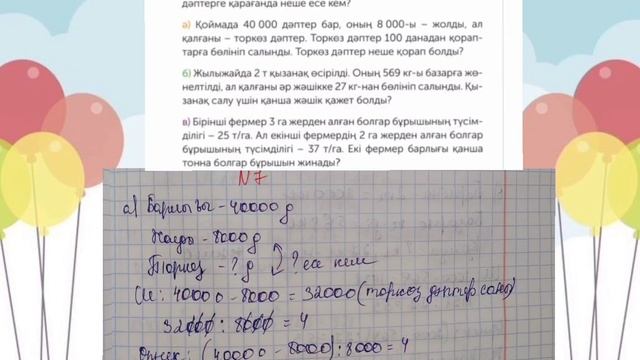 дәптерге қарағанда неше есе кем?
а) Қоймада 40 000 дәптер бар, оның 8 000-ы – жолды, ал
қалғаны – торкөз дәптер. Торкөз дәптер 100 данадан қорап-
тарға бөлініп салынды. Торкөз дәптер неше қорап болды?
б) Жылыжайда 2 т қызанақ өсірілді. Оның 569 кг-ы базарға жө-
нелтілді, ал қалғаны әр жәшікке 27 кг-нан бөлініп салынды. Қы-
занақ салу үшін қанша жәшік қажет болды?
в) Бірінші фермер 3 га жерден алған болгар бұрышының түсім-
ділігі – 25 т/га. Ал екінші фермердің 2 га жерден алған болгар
бұрышының түсімділігі – 37 т/га. Екі фермер барлығы қанша
тонна болгар бұрышын жинады?
N7
а) Барлығы – 40000 д
– 8000 д
– ? д ? есе кем
Ш: 40000 – 8000 = 32000 (торкөз дәптер саны)
32000 : 8000 = 4
Өрнек: (40000 – 8000) : 8000 = 4